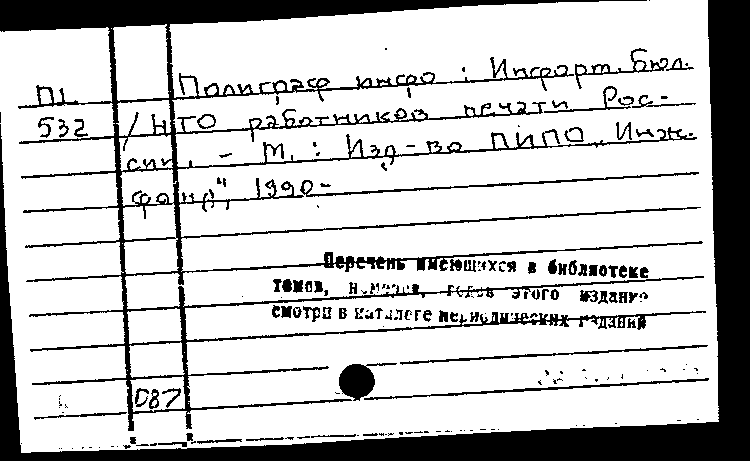 П1 Полиграф инфо : Информ. бюл.
532 / НТО работников печати Рос-
сии. - М. : Изд-во ПИПО "Инж.
фонд", 1990-
Перечень имеющихся в библиотеке
томов, номеров, годов этого издания
смотри в каталоге периодических изданий
087